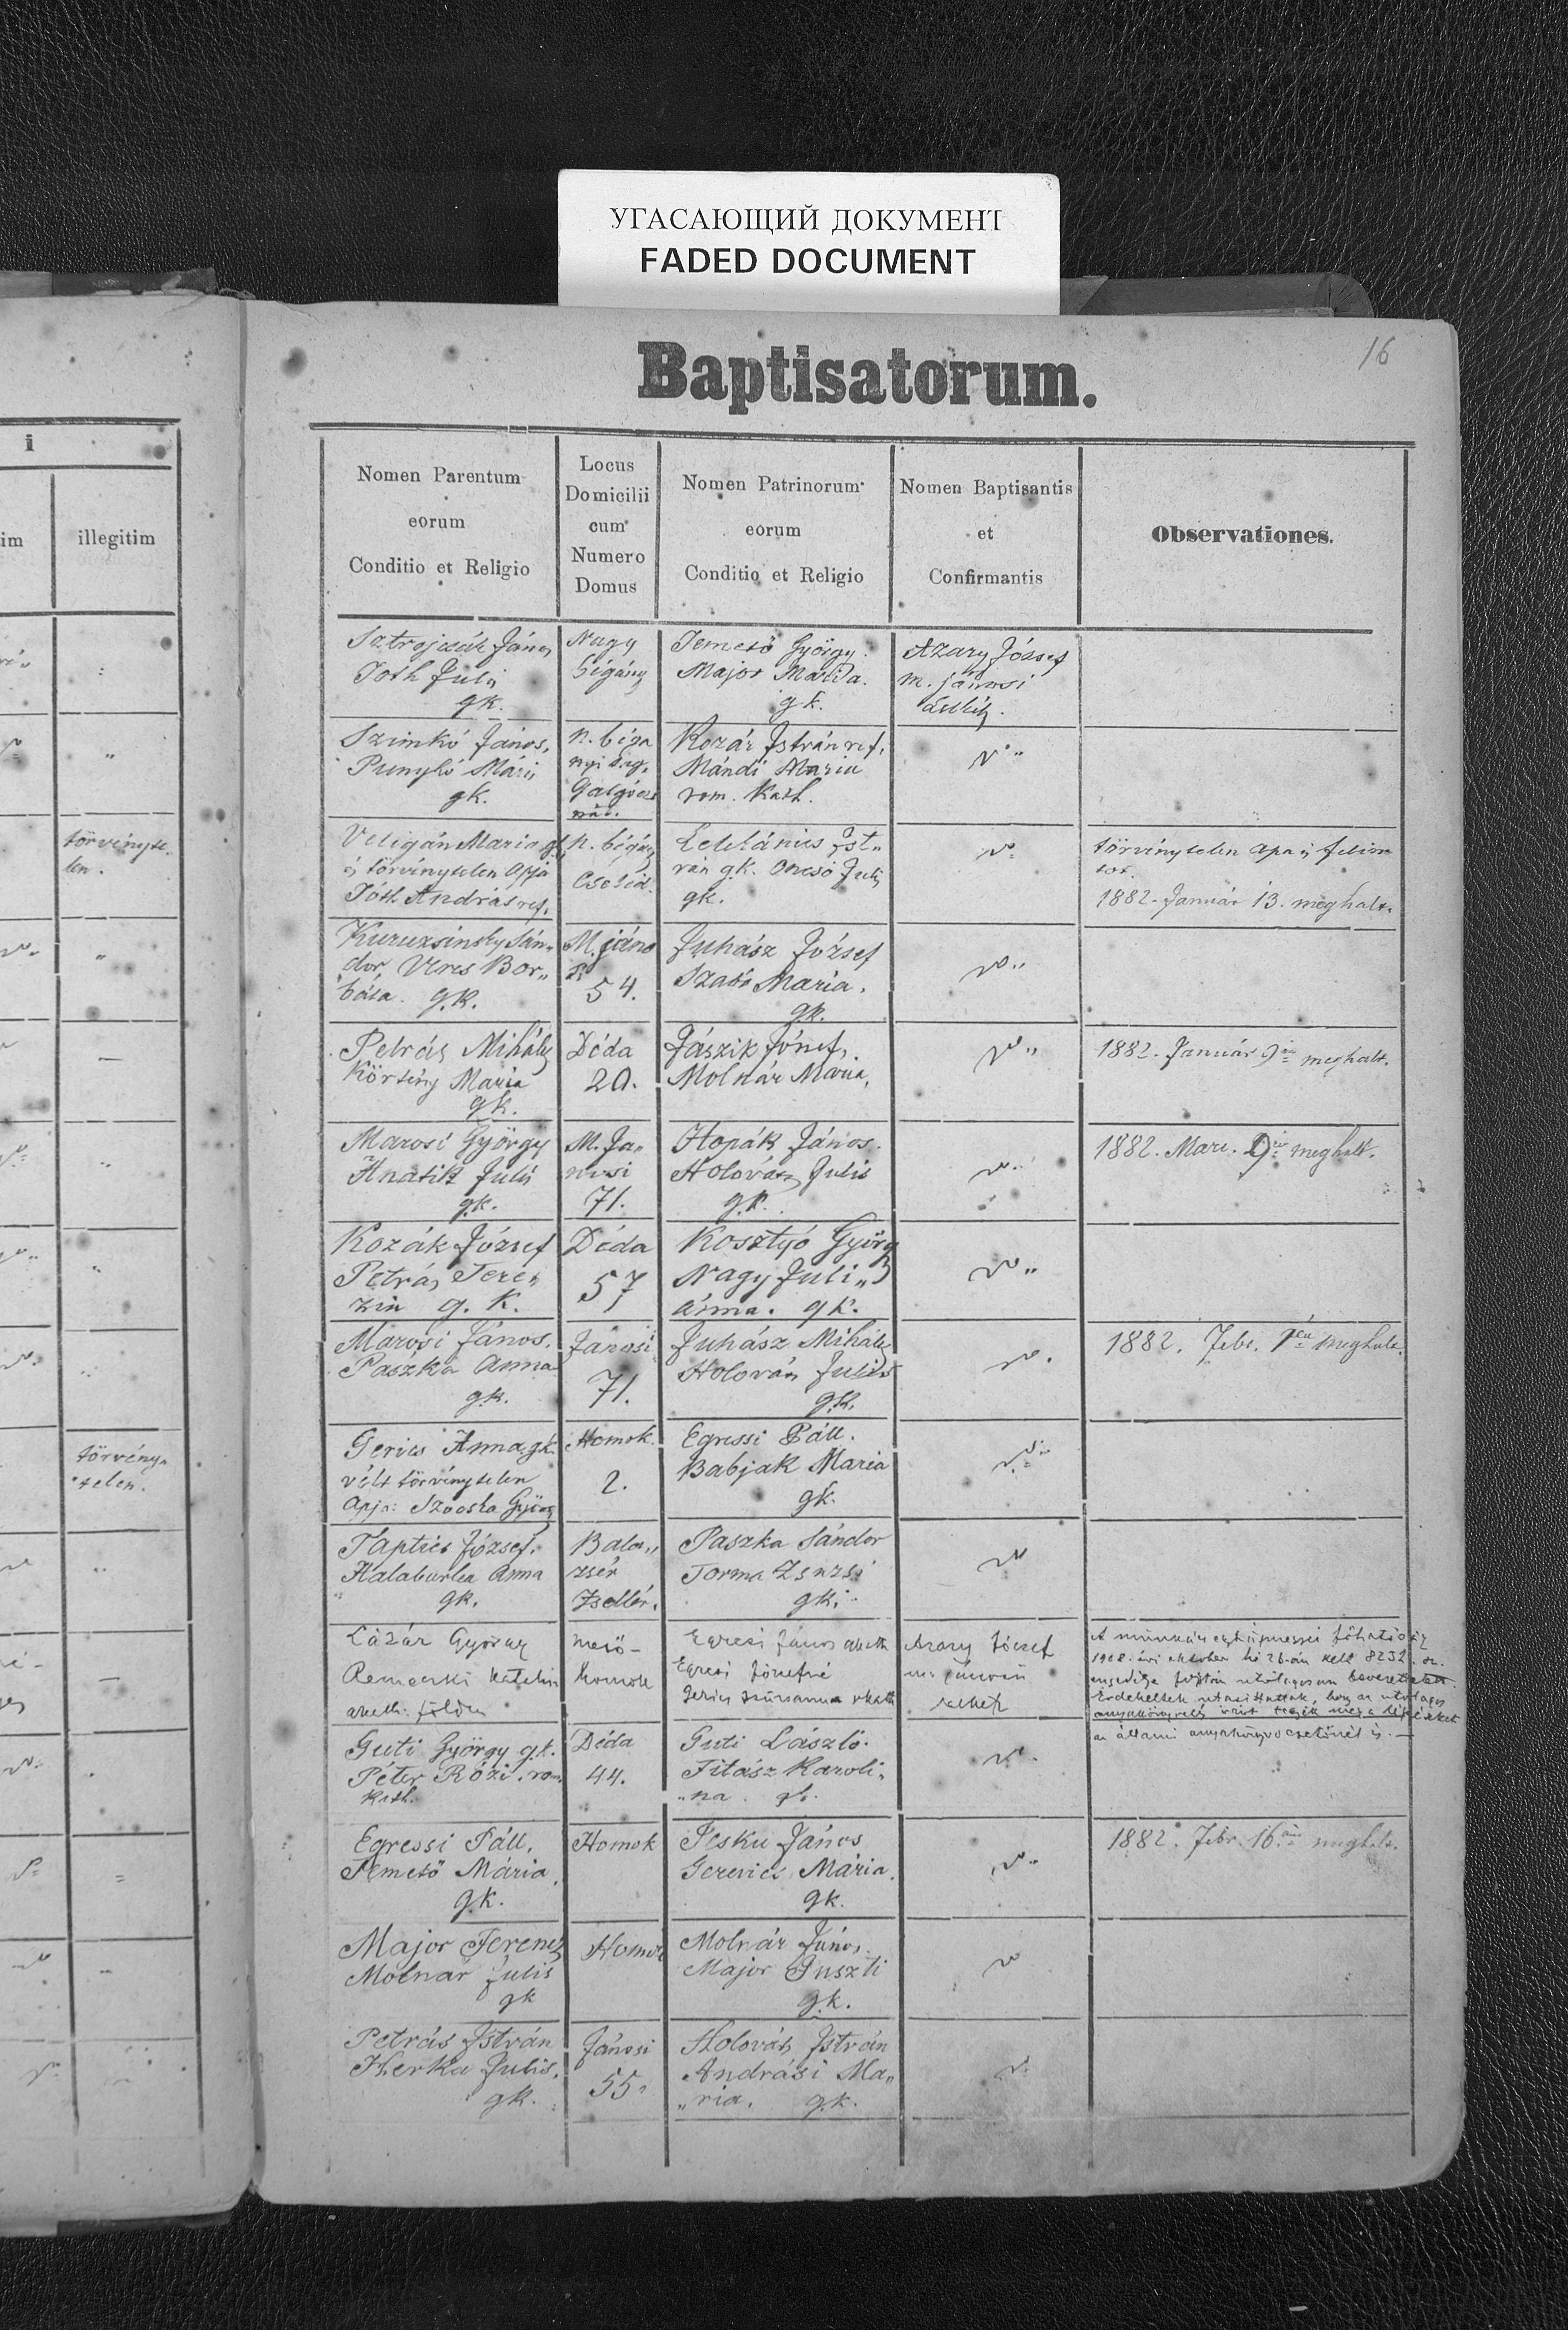 УГАСАЮЩИЙ ДОКУМЕНТ
FADED DOCUMENT
16
Baptisatorum.
i
im
illegitim
Nomen Parentum
eorum
Conditio et Religio
Locus
Domicilii
cum
Numero
Domus
Nomen Patrinorum
eorum
Conditio et Religio
Nomen Baptisantis
et
Confirmantis
Observationes.
János
Tóth Juli
gk.
Nagy
Bégány
Temető György.
Major Maria.
gk.
Azary József
m. jánosi
lelkész.
Szimkó János,
Punykó Mári
gk.
n. béga
nyi
Kozár István ref,
Mándi Maria
rom. Kath.
törvényte-
len.
Veligán Maria gk
és törvénytelen apja
Tóth András ref.
n. bégány
Cseléd.
Lellánius Ist„
ván g.k. Oncsó Juli
gk.
törvénytelen apa is
1882. Január 13. meghalt.
Sán„
dor, Veres Bor„
bála. g.k.
M. jáno
si
54.
Juhász József
Szabó Maria.
g.k.
Petrás Mihály
Maria
gk.
Déda
20.
Jászik József,
Molnár Mária,
1882. Január 9 én meghalt.
Marosi György
Hnatik Juli
g.k.
M. Já„
nosi
71.
Hopák János.
Holovács Julis
g.k.
1882. Marc. 9 én meghalt.
Kozák József
Petrás Tere„
zia g. K.
Déda
57
Kosztyó György
Nagy Juli„
ánna. gk.
Marosi János.
Paszka Anna
g.k.
Jánosi
71.
Juhász Mihály
Holovács Julis
g.k.
1882. Febr. 1 én meghalt.
törvény„
telen.
Gerics Anna gk.
vélt törvénytelen
Apja: György
Homok.
2.
Egressi Páll.
Babjak Maria
gk.
Taptics József.
Kalaburka Anna
gk.
Bala„
zsér
Zsellér.
Paszka Sándor
Torma Zsuzsi
gk.
Lázár György
Katalin
Mező-
homok
Egresi János
Egresi Józsefné
Gerics Zsuzsanna
Azary József
m. jánosi
lelkész
A munkácsi egyházmegyei főhatóság
1908. évi október hó 26-án kelt 8232. sz.
engedélye folytán utólagosan bevezettetett.
az állami anyakönyvvezetőnél is. —
Guti György g.k.
Péter Rózi. rom.
kath.
Déda
44.
Guti László.
Titász Karoli„
„na. gk.
Egressi Páll.
Temető Mária.
g.k.
Homok
Jesku János
Gerevics Mária.
gk.
1882. Febr. 16. án meghalt.
Major Ferencz
Molnár Julis
gk
Homok
Molnár János.
Major Juszti
g.k.
Petrás István
Herka Julis.
gk.
Jánosi
55
Holovács István
Andrási Ma„
„ria. g.k.